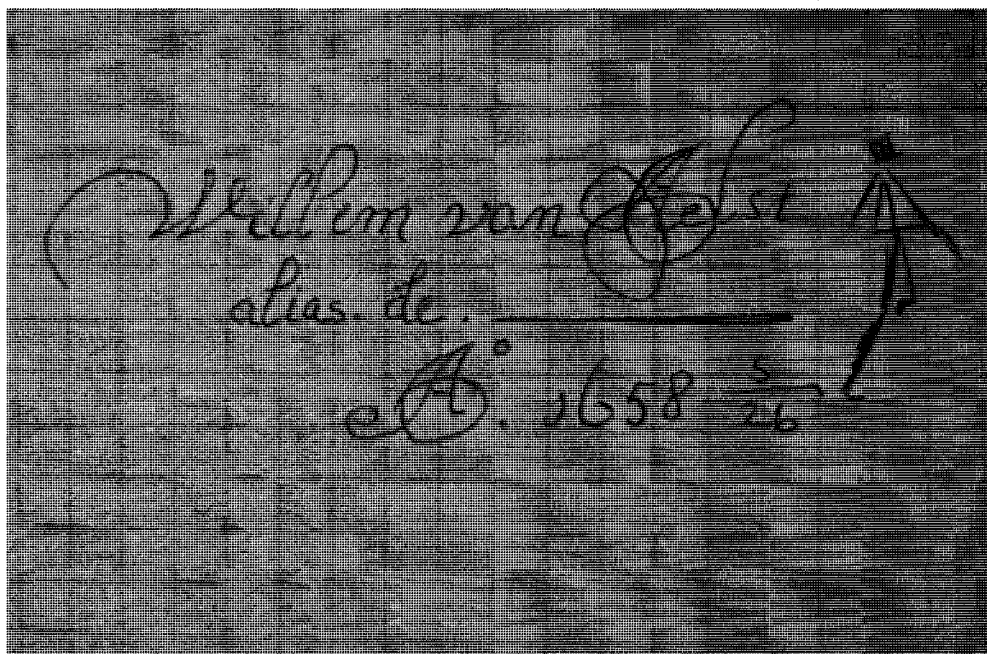 Willem van Aelst
alias. de.
A°. 1658 5/26